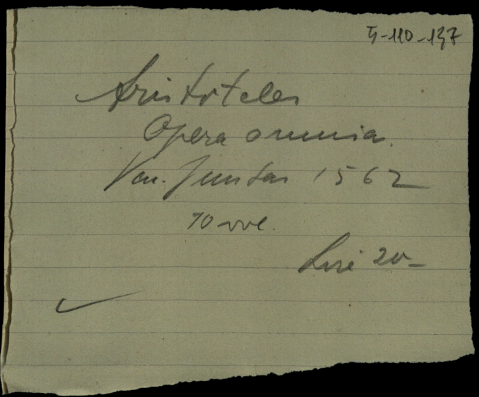 5-110-137
Aristoteles
Opera omnia.
Ven. Juntas 1562
10 vol.
Lire 20-